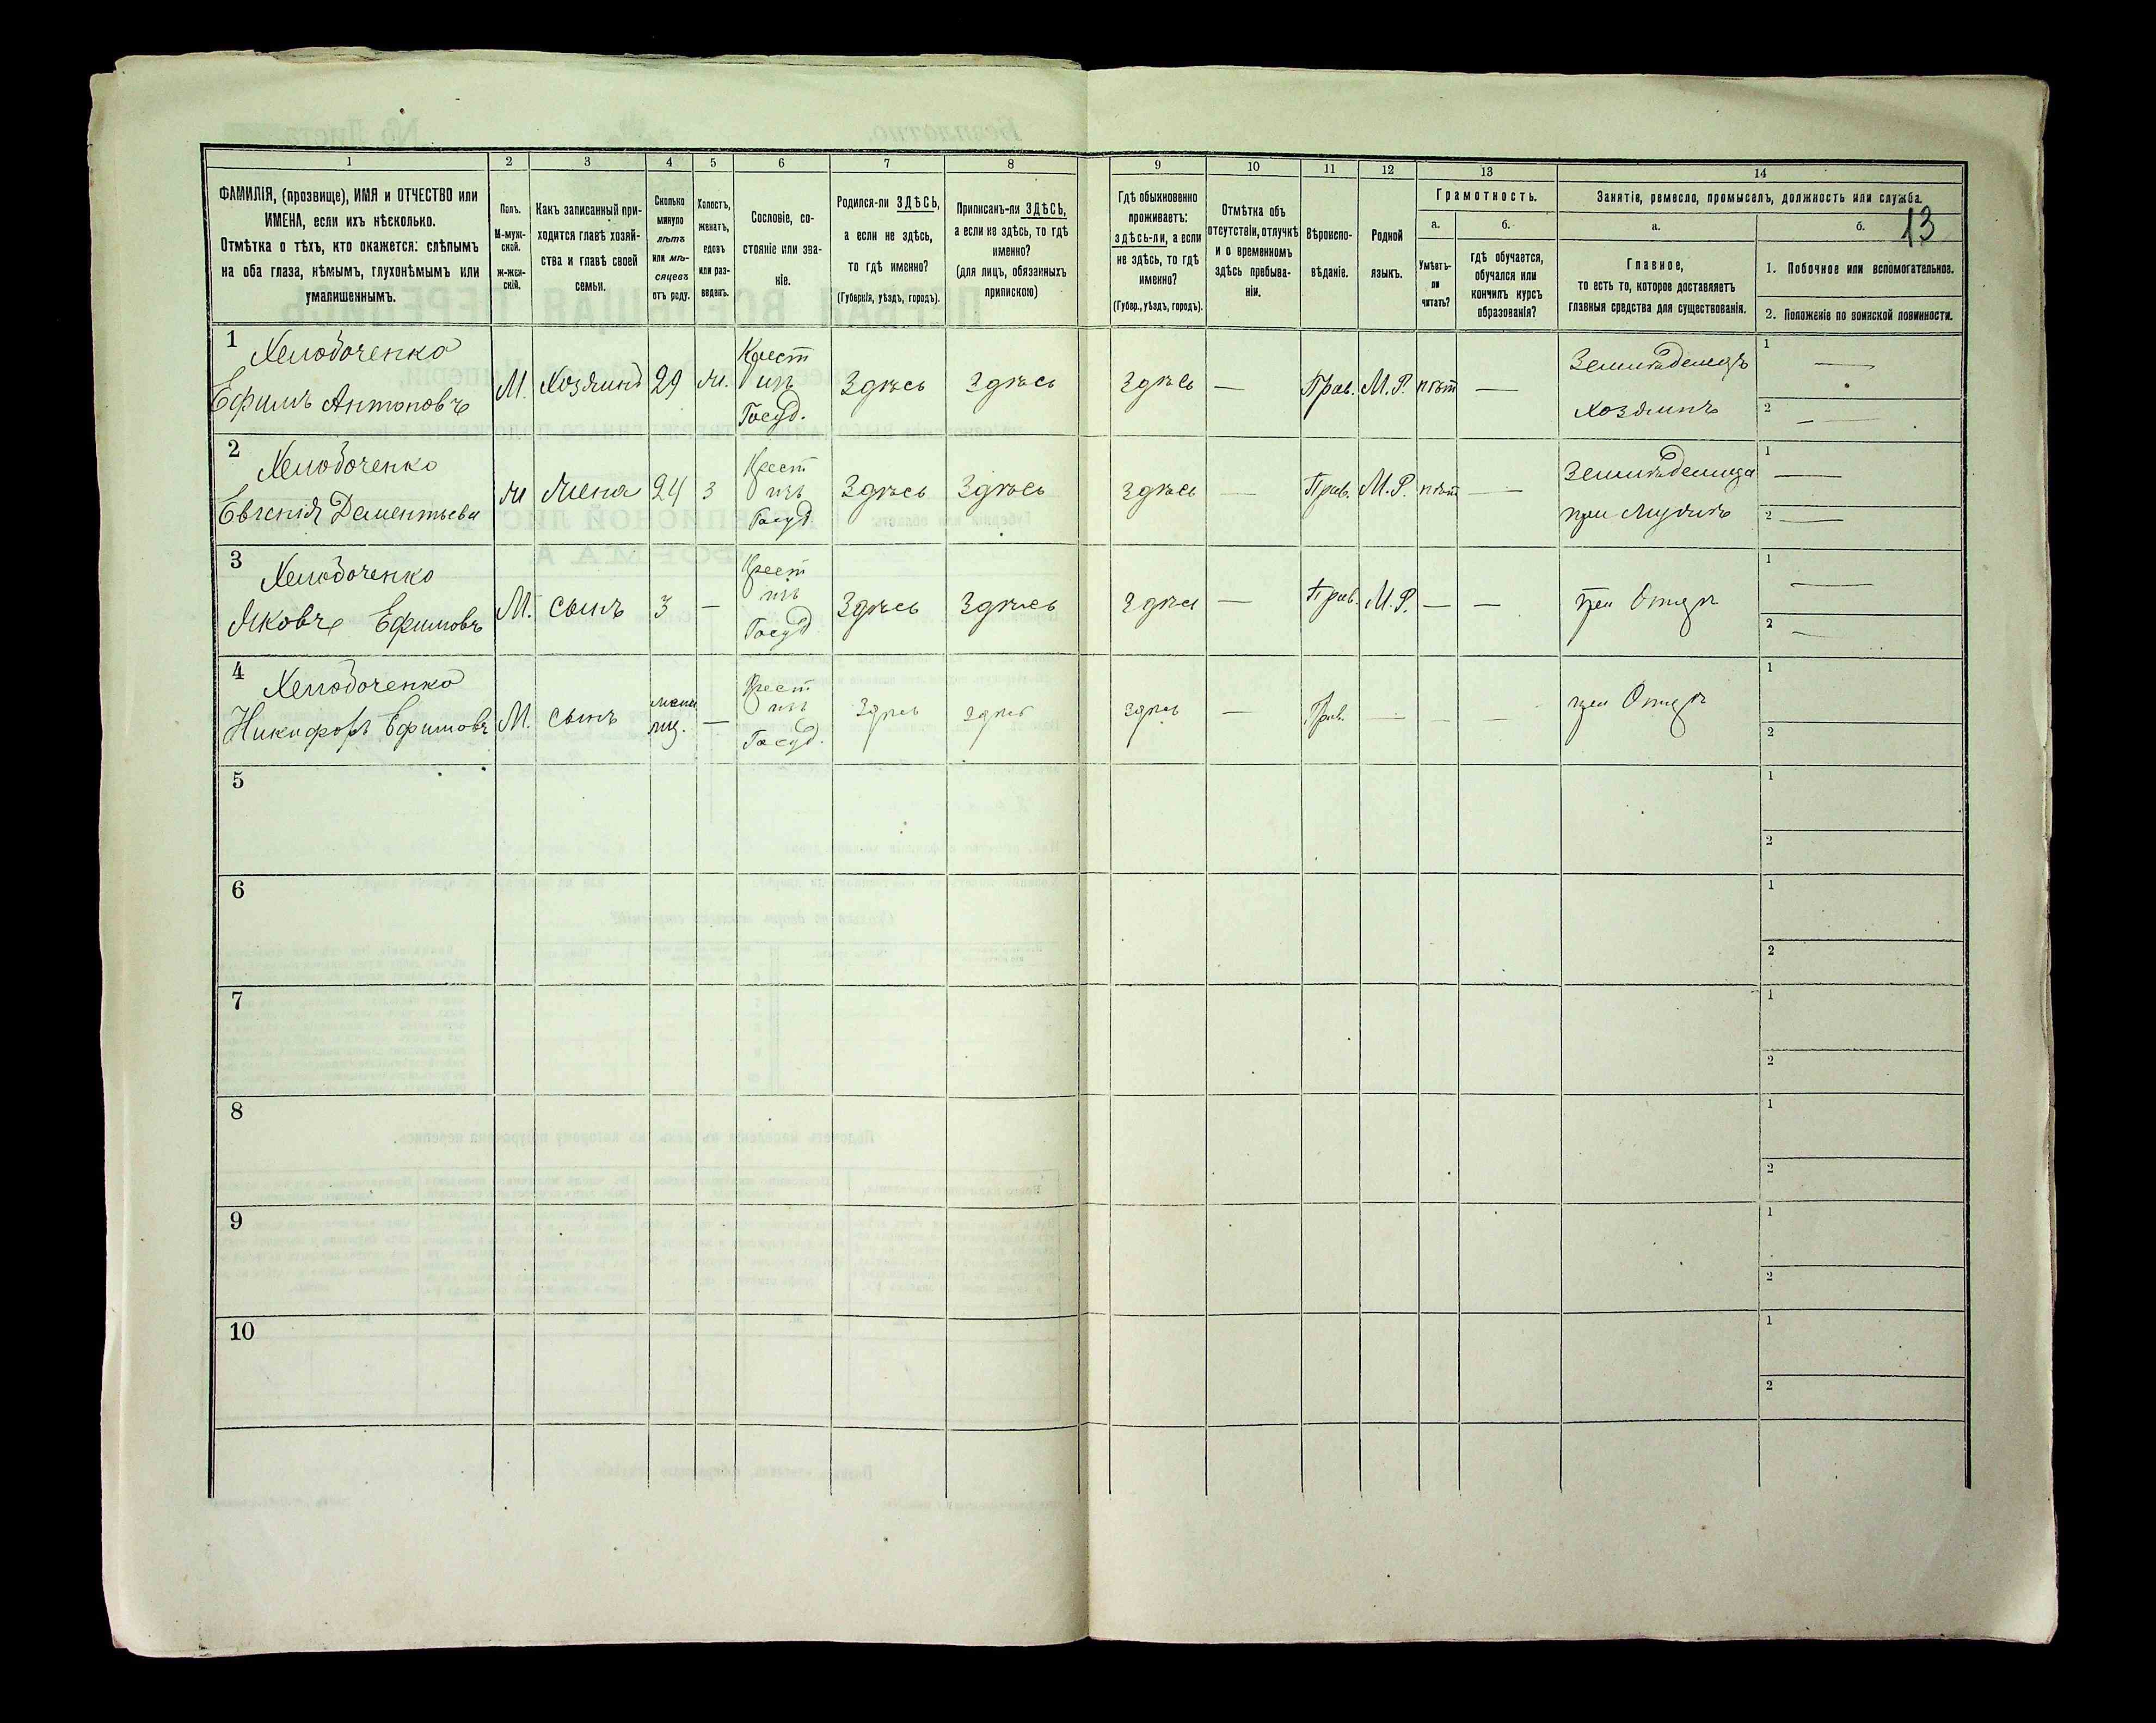 1
2
3
4
5
6
7
8
9
10
11
12
13
14
ФАМИЛІЯ, (прозвище), ИМЯ и ОТЧЕСТВО или
ИМЕНА, если ихъ нѣсколько.
Отмѣтка о тѣхъ, кто окажется: слѣпымъ
на оба глаза, нѣмымъ, глухонѣмымъ или
умалишеннымъ.
Полъ.
М-муж-
ской.
ж-жен-
скій.
Какъ записанный при-
ходится главѣ хозяй-
ства и главѣ своей
семьи.
Сколько
минуло
лѣтъ
или мѣ-
сяцевъ
отъ роду.
Холостъ,
женатъ,
вдовъ
или раз-
веденъ.
Сословіе, со-
стояніе или зва-
ніе.
Родился-ли ЗДѢСЬ,
а если не здѣсь,
то гдѣ именно?
(Губернія, уѣздъ, городъ).
Приписанъ-ли ЗДѢСЬ,
а если не здѣсь, то гдѣ
именно?
(для лицъ, обязанныхъ
припискою)
Гдѣ обыкновенно
проживаетъ:
здѣсь-ли, а если
не здѣсь, то гдѣ
именно?
(Губер., уѣздъ, городъ).
Отмѣтка объ
отсутствіи, отлучкѣ
и о временномъ
здѣсь пребыва-
ніи.
Вѣроиспо-
вѣданіе.
Родной
языкъ.
Грамотность.
а.
б.
Умѣетъ-
ли
читать?
гдѣ обучается,
обучался или
кончилъ курсъ
образованія?
Занятіе, ремесло, промыселъ, должность или служба.
а.
б.
13
Главное,
то есть то, которое доставляетъ
главныя средства для существованія.
1. Побочное или вспомогательное.
2. Положеніе по воинской повинности.
1
Ефимъ Антоновъ
М.
Хозяинъ
29
Крест
изъ
Госуд.
Здѣсь
Здѣсь
Здѣсь
—
Прав.
М.Р.
нѣт
—
Хозяинъ
1 —
2 —
2
Евгенія Дементьева
жена
24
з
Крест
изъ
Госуд
Здѣсь
Здѣсь
Здѣсь
—
Прав.
М.Р.
нѣт
—
при Мужѣ
1 —
2 —
3
Яковъ Ефимовъ
М.
сынъ
3
—
Крест
изъ
Госуд
Здѣсь
Здѣсь
Здѣс
—
Прав.
М.Р.
—
—
при Отцѣ
1 —
2 —
4
Никифоръ Ефимовъ
М.
сынъ
—
Крест
изъ
Госуд.
Здѣс
здѣс
здѣс
—
Прав.
—
—
—
при Отцѣ
1
2
5
1
2
6
1
2
7
1
2
8
1
2
9
1
2
10
1
2